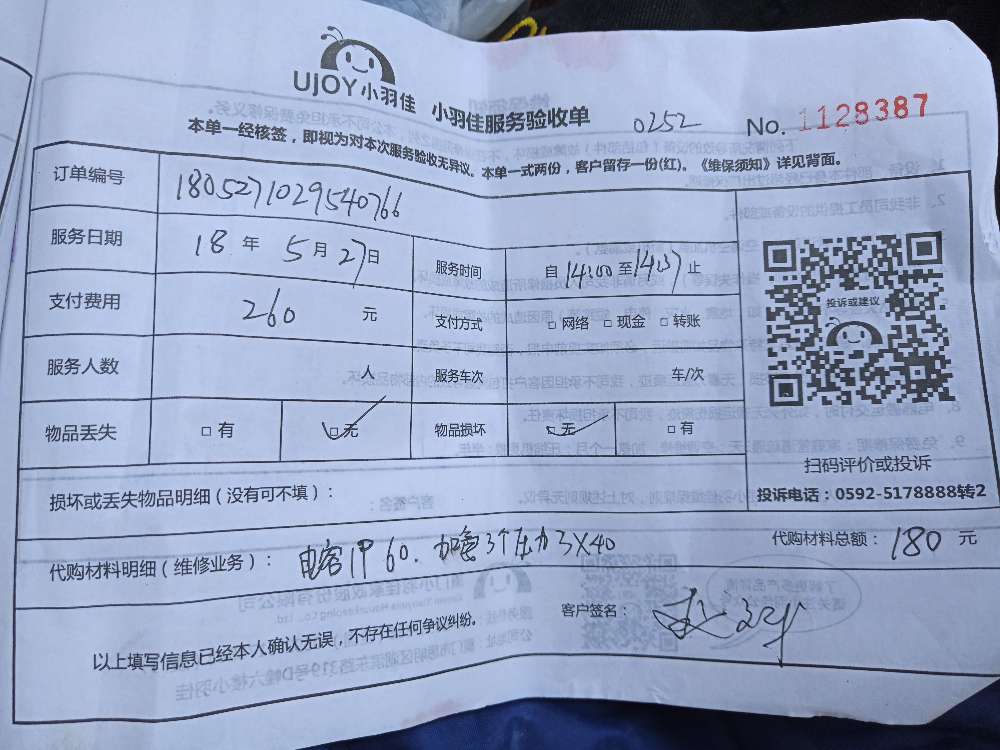 UJOY小羽佳 小羽佳服务验收单 0252 No. 1128387
本单一经核签，即视为对本次服务验收无异议。本单一式两份，客户留存一份(红)。《维保须知》详见背面。
订单编号 1805271029540766
服务日期 18 年 5 月 27 日 服务时间 自 14:00 至 14:37 止
支付费用 260 元 支付方式 □ 网络 □ 现金 □ 转账
服务人数 人 服务车次 车/次
物品丢失 □ 有 □ 无 物品损坏 □ 无 □ 有
投诉或建议
扫码评价或投诉
投诉电话：0592-5178888转2
损坏或丢失物品明细（没有可不填）：
代购材料明细（维修业务）： 电容1个 60. 加氟3个压力 3X40 代购材料总额： 180 元
客户签名：
以上填写信息已经本人确认无误，不存在任何争议纠纷。